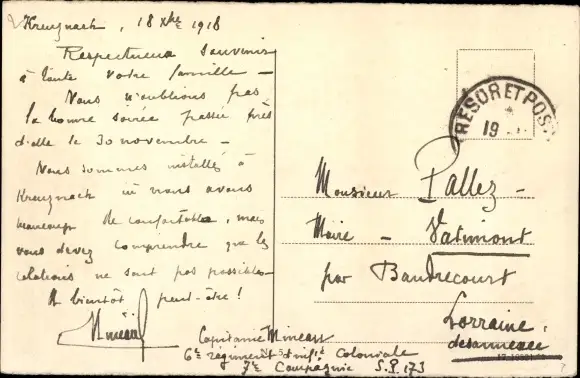 Kreuznach, 18 Xbre 1918
Respectueux souvenir
à toute votre famille –
Nous n'oublions pas
la bonne soirée passée près
d'elle le 30 novembre –
Nous sommes installés à
Kreuznach où nous avons
beaucoup de confortable, mais
vous devez comprendre que les
relations ne sont pas possibles –
A bientôt peut-être !
Capitaine
6e régiment d'infie coloniale
7e Compagnie S.P. 173
TRESOR ET POS
19
Monsieur Pallez –
Maire – Vatimont
par Baudrecourt
Lorraine,
désannexée